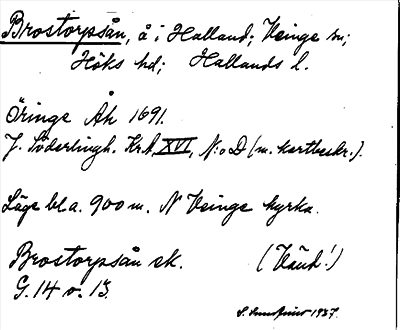 Brostorpsån, å i Halland; Veinge sn;
Höks hd; Hallands l.
Öringe Åh 1691.
J. Söderlingh. Kr.A. XVI, N:o D (m. kartbeskr.).
Läge bl.a. 900 m. N Veinge kyrka.
Brostorpsån ek. (Vänd!)
G. 14 o. 13.
1937.